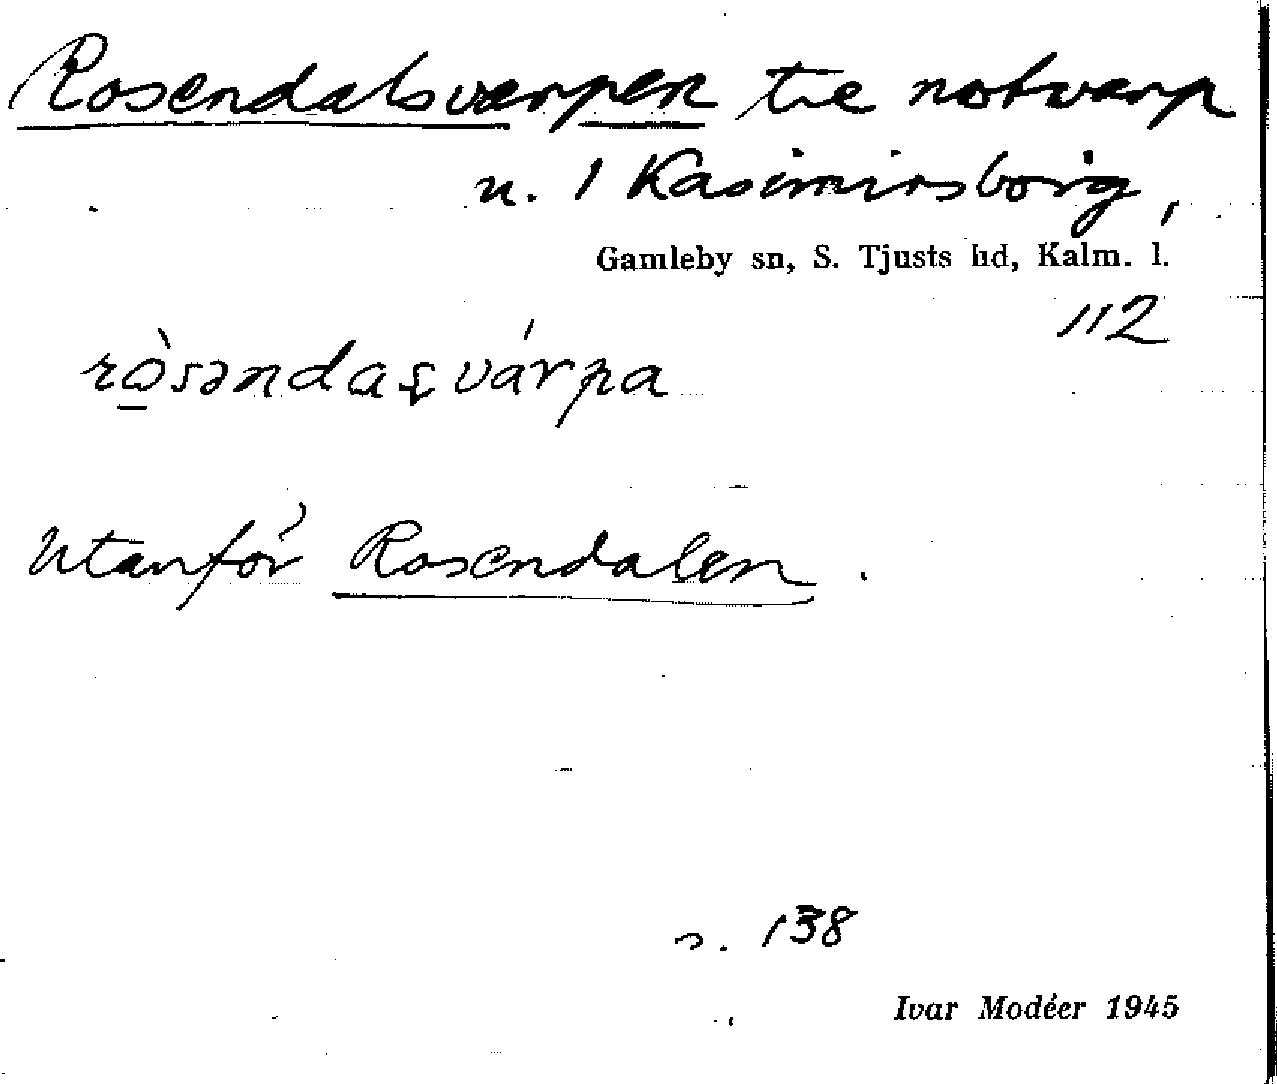 Rosendalsvarpen tre notvarp
u. 1 Kasimirsborg,
Gamleby sn, S. Tjusts hd, Kalm. l.
112
rò̱səndaʂvárpa
Utanför Rosendalen.
s. 138
Ivar Modéer 1945